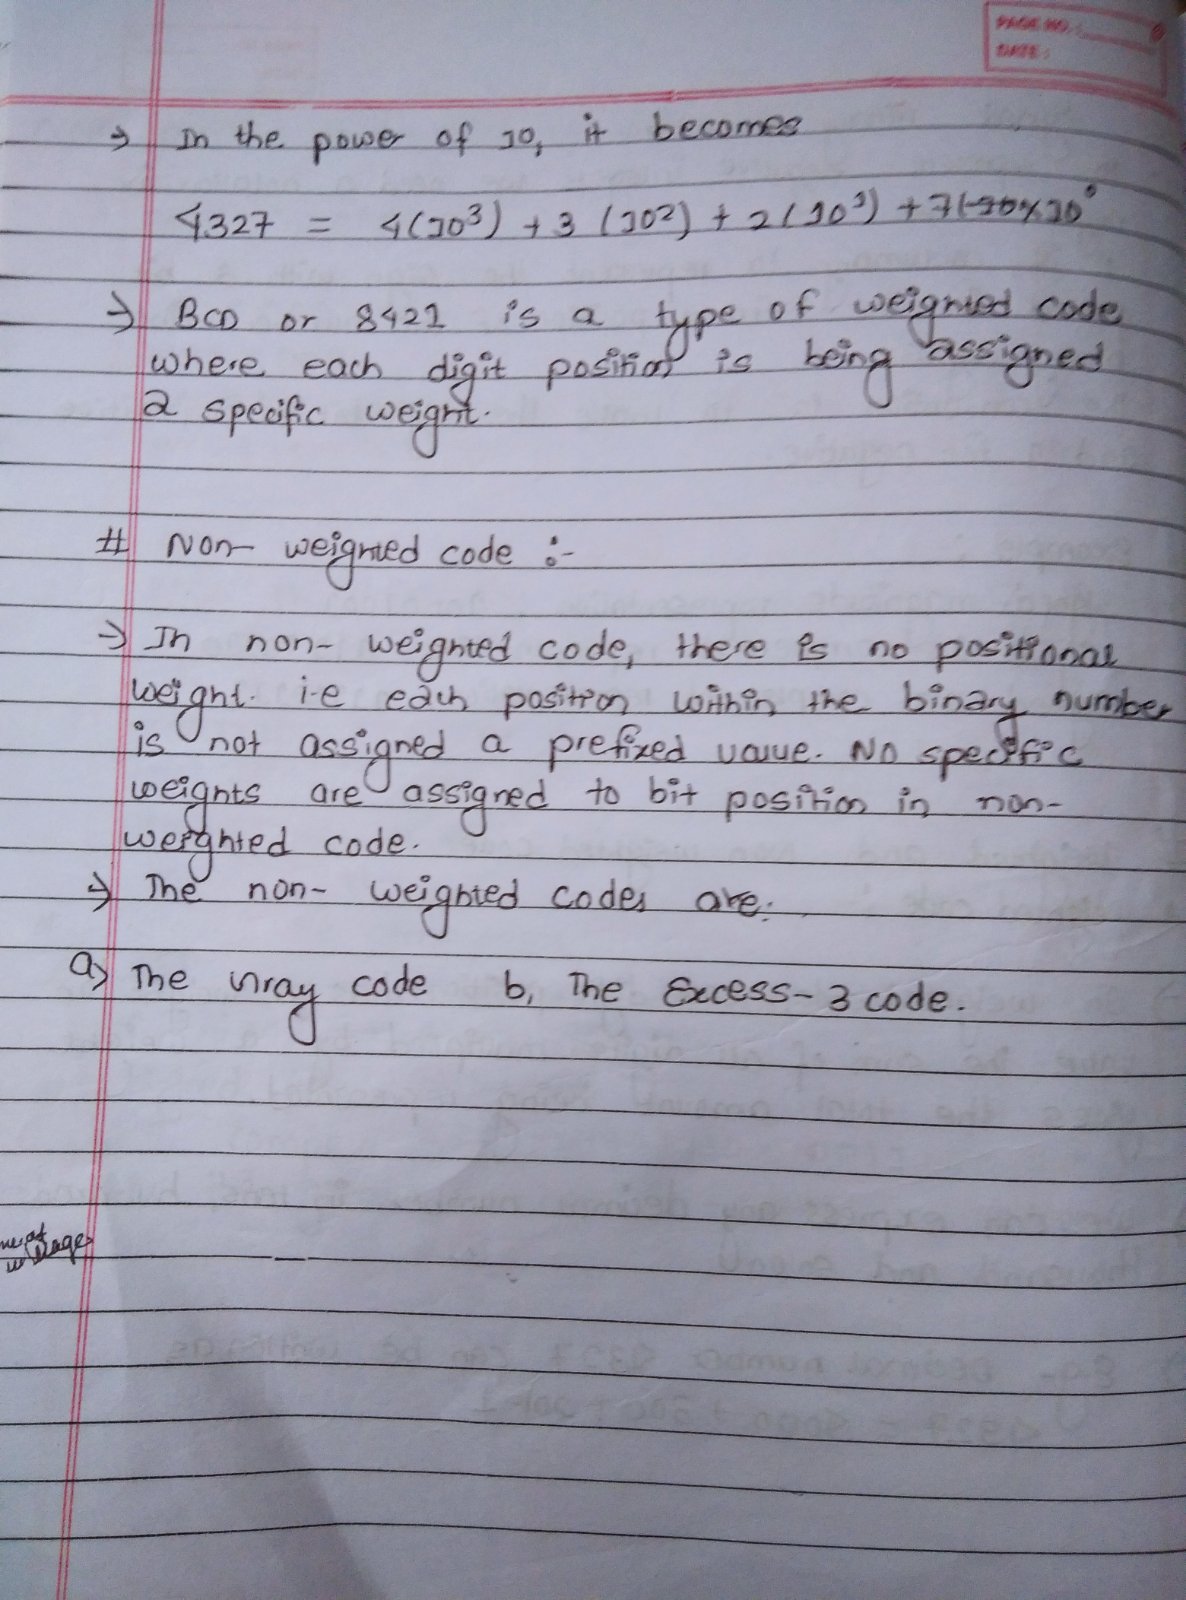 PAGE NO.:
DATE:
→ In the power of 10, it becomes
4327 = 4(10³) + 3 (10²) + 2(10¹) + 7 10⁰
→ BCD or 8421 is a type of weighted code
where each digit position is being assigned
a specific weight.
# Non- weighted code :-
→ In non- weighted code, there is no positional
weight. i.e each position within the binary number
is not assigned a prefixed value. No specific
weights are assigned to bit position in non-
weighted code.
→ The non- weighted codes are:
a) The Gray code b, The Excess-3 code.